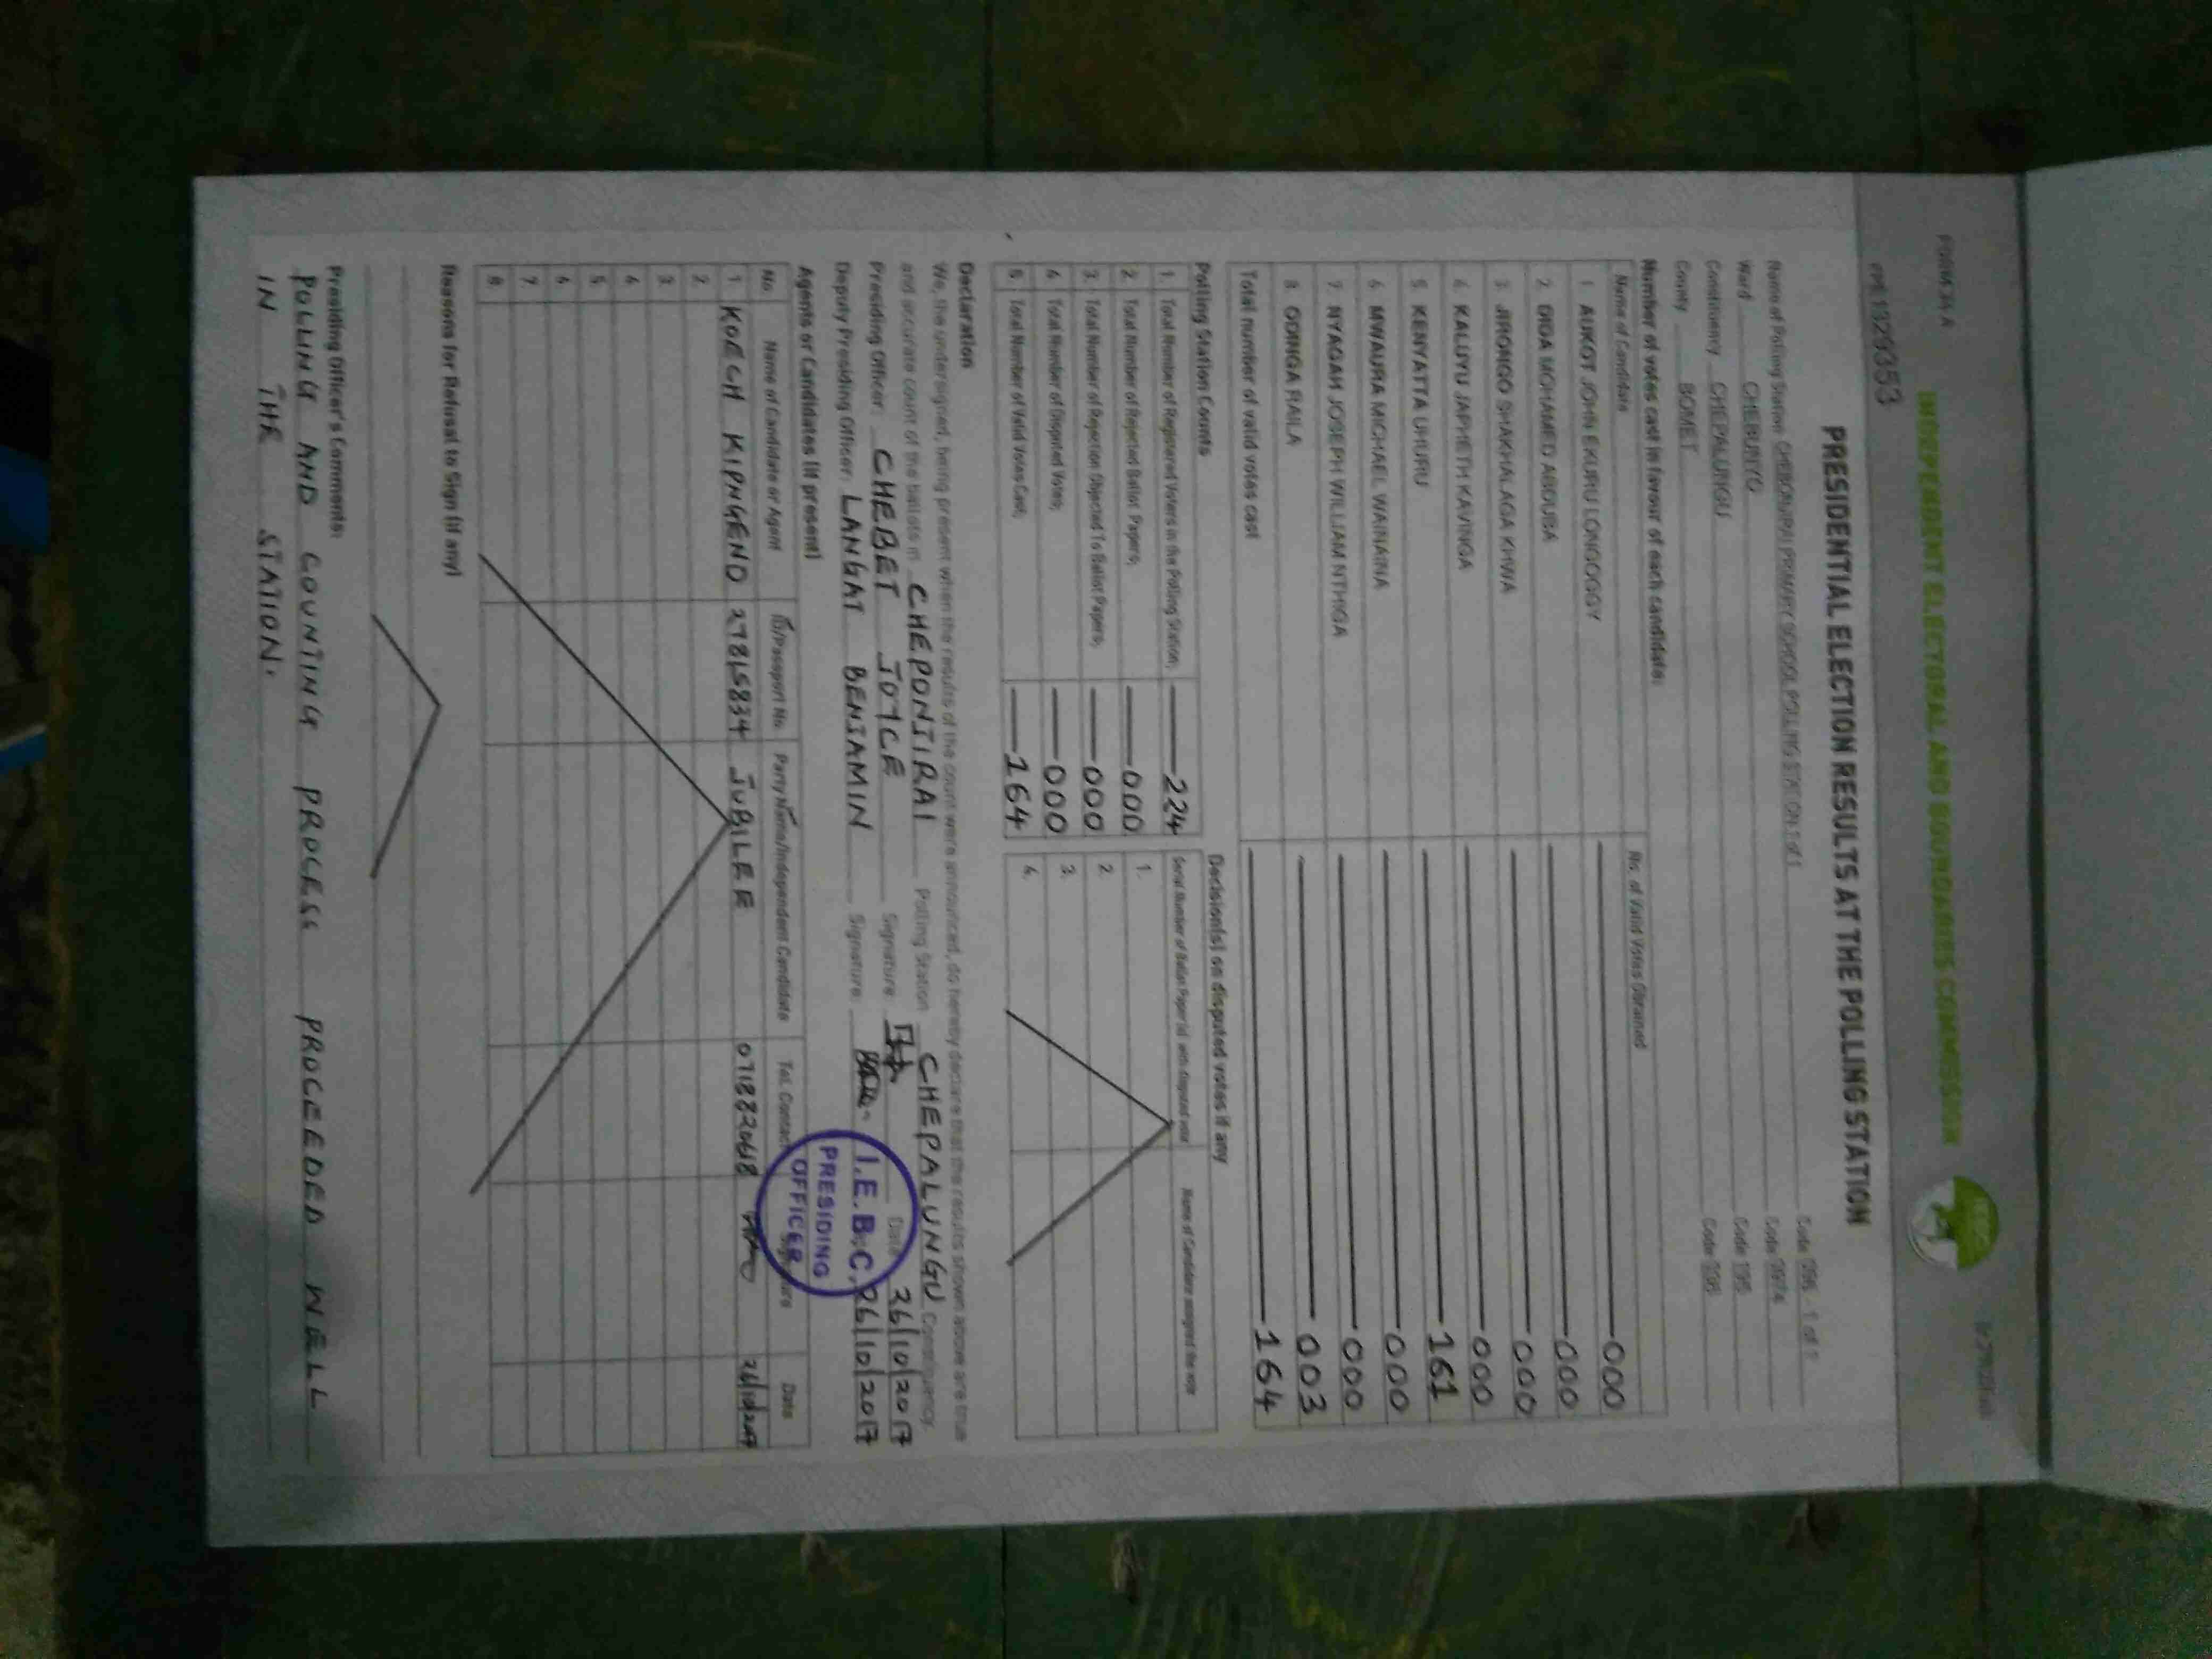 FORM 34 A
INDEPENDENT ELECTORAL AND BOUNDARIES COMMISSION
PRESIDENTIAL ELECTION RESULTS AT THE POLLING STATION
Name of Polling Station PRIMARY SCHOOL POLLING STATION 1 of 1 Code 1 of 1
Ward CHEBUNYO Code
Constituency CHEPALUNGU Code
County BOMET Code
Number of votes cast in favour of each candidate:
Name of Candidate No. of Valid Votes Obtained
1 AUKOT JOHN EKURU LONGOGGY 000
2. DIDA MOHAMED ABDUBA 000
3. JIRONGO SHAKHALAGA KHWA 000
4. KALUYU JAPHETH KAVINGA 000
5 KENYATTA UHURU 161
6 MWAURA MICHAEL WAINAINA 000
7 NYAGAH JOSEPH WILLIAM NTHIGA 000
8. ODINGA RAILA 003
Total number of valid votes cast 164
Polling Station Counts
1. Total Number of Registered Voters in the Polling Station; 224
2. Total Number of Rejected Ballot Papers; 000
3. Total Number of Rejection Objected To Ballot Papers; 000
4. Total Number of Disputed Votes; 000
5. Total Number of Valid Votes Cast; 164
Decision(s) on disputed votes if any
Serial Number of Ballot Paper(s) with disputed vote Name of Candidate assigned the vote
1.
2.
3.
4.
Declaration
We, the undersigned, being present when the results of the count were announced, do hereby declare that the results shown above are true
and accurate count of the ballots in CHEPONJIRAI Polling Station CHEPALUNGU Constituency.
Presiding Officer: CHEBET JOYCE Signature: Date 26/10/2017
Deputy Presiding Officer: LANGAT BENJAMIN Signature: 26/10/2017
I.E.B.C.
PRESIDING
OFFICER
Agents or Candidates (if present)
No. Name of Candidate or Agent ID/Passport No. Party Name/Independent Candidate Tel. Contact Signature Date
1 KOECH KIPNGENO 27865834 JUBILEE 0718820618 26/10/2017
2.
3
4
5
6
7
8
Reasons for Refusal to Sign (if any)
Presiding Officer's Comments:
POLLING AND COUNTING PROCESS PROCEEDED WELL
IN THE STATION.